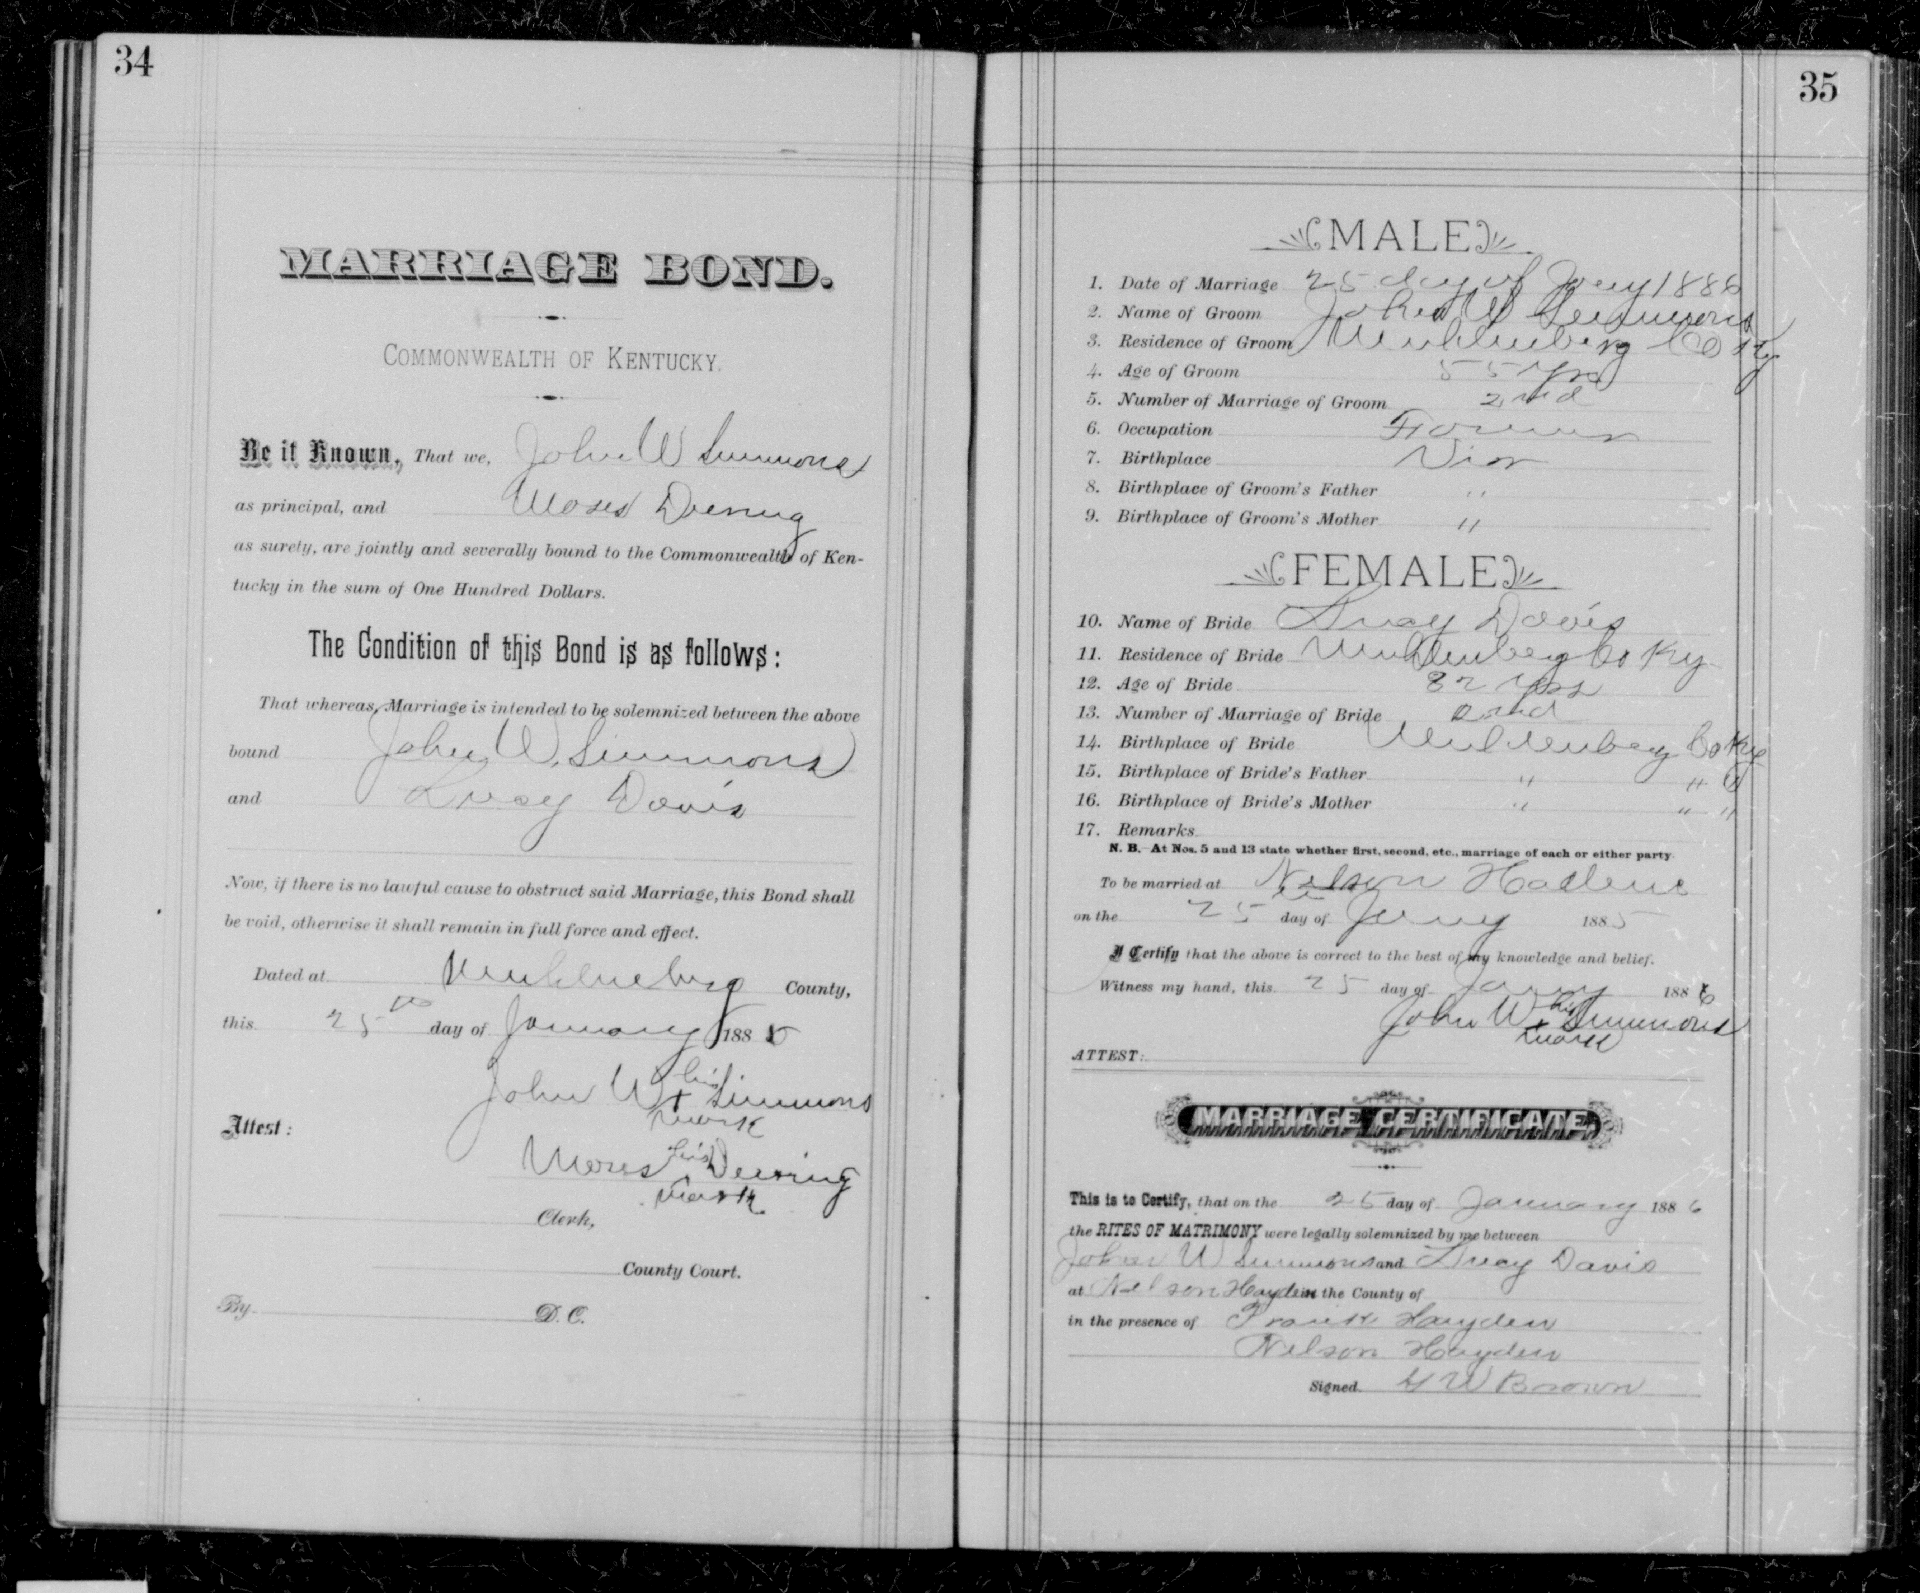 34
MARRIAGE BOND.
COMMONWEALTH OF KENTUCKY.
Be it Known, That we, John W Simmons
as principal, and Moses Deering
as surety, are jointly and severally bound to the Commonwealth of Ken-
tucky in the sum of One Hundred Dollars.
The Condition of this Bond is as follows:
That whereas, Marriage is intended to be solemnized between the above
bound John W. Simmons
and Lucy Davis
Now, if there is no lawful cause to obstruct said Marriage, this Bond shall
be void, otherwise it shall remain in full force and effect.
Dated at Muhlenberg County,
this 25th day of January 188
John W his x mark Simmons
Attest:
Moses his mark Deering
Clerk,
County Court.
By D. C.
35
MALE
1. Date of Marriage 25 day of Jany 1886
2. Name of Groom John W Simmons
3. Residence of Groom Muhlenberg Co Ky
4. Age of Groom 55 yrs
5. Number of Marriage of Groom 2nd
6. Occupation Farmer
7. Birthplace
8. Birthplace of Groom's Father "
9. Birthplace of Groom's Mother "
FEMALE
10. Name of Bride Lucy Davis
11. Residence of Bride Muhlenberg Co Ky
12. Age of Bride yrs
13. Number of Marriage of Bride 2nd
14. Birthplace of Bride Muhlenberg Co Ky
15. Birthplace of Bride's Father " " "
16. Birthplace of Bride's Mother " " "
17. Remarks
N. B. At Nos. 5 and 13 state whether first, second, etc., marriage of each or either party
To be married at Nelson
on the 25 day of Jany 1885
I Certify that the above is correct to the best of my knowledge and belief.
Witness my hand, this 25 day of Jany 1886
John W his x mark Simmons
ATTEST:
MARRIAGE CERTIFICATE
This is to Certify, that on the 25 day of January 1886
the RITES OF MATRIMONY were legally solemnized by me between
John W Simmons and Lucy Davis
at Nelson Hayden in the County of
in the presence of Frank Hayden
Nelson Hayden
Signed. G W Brown